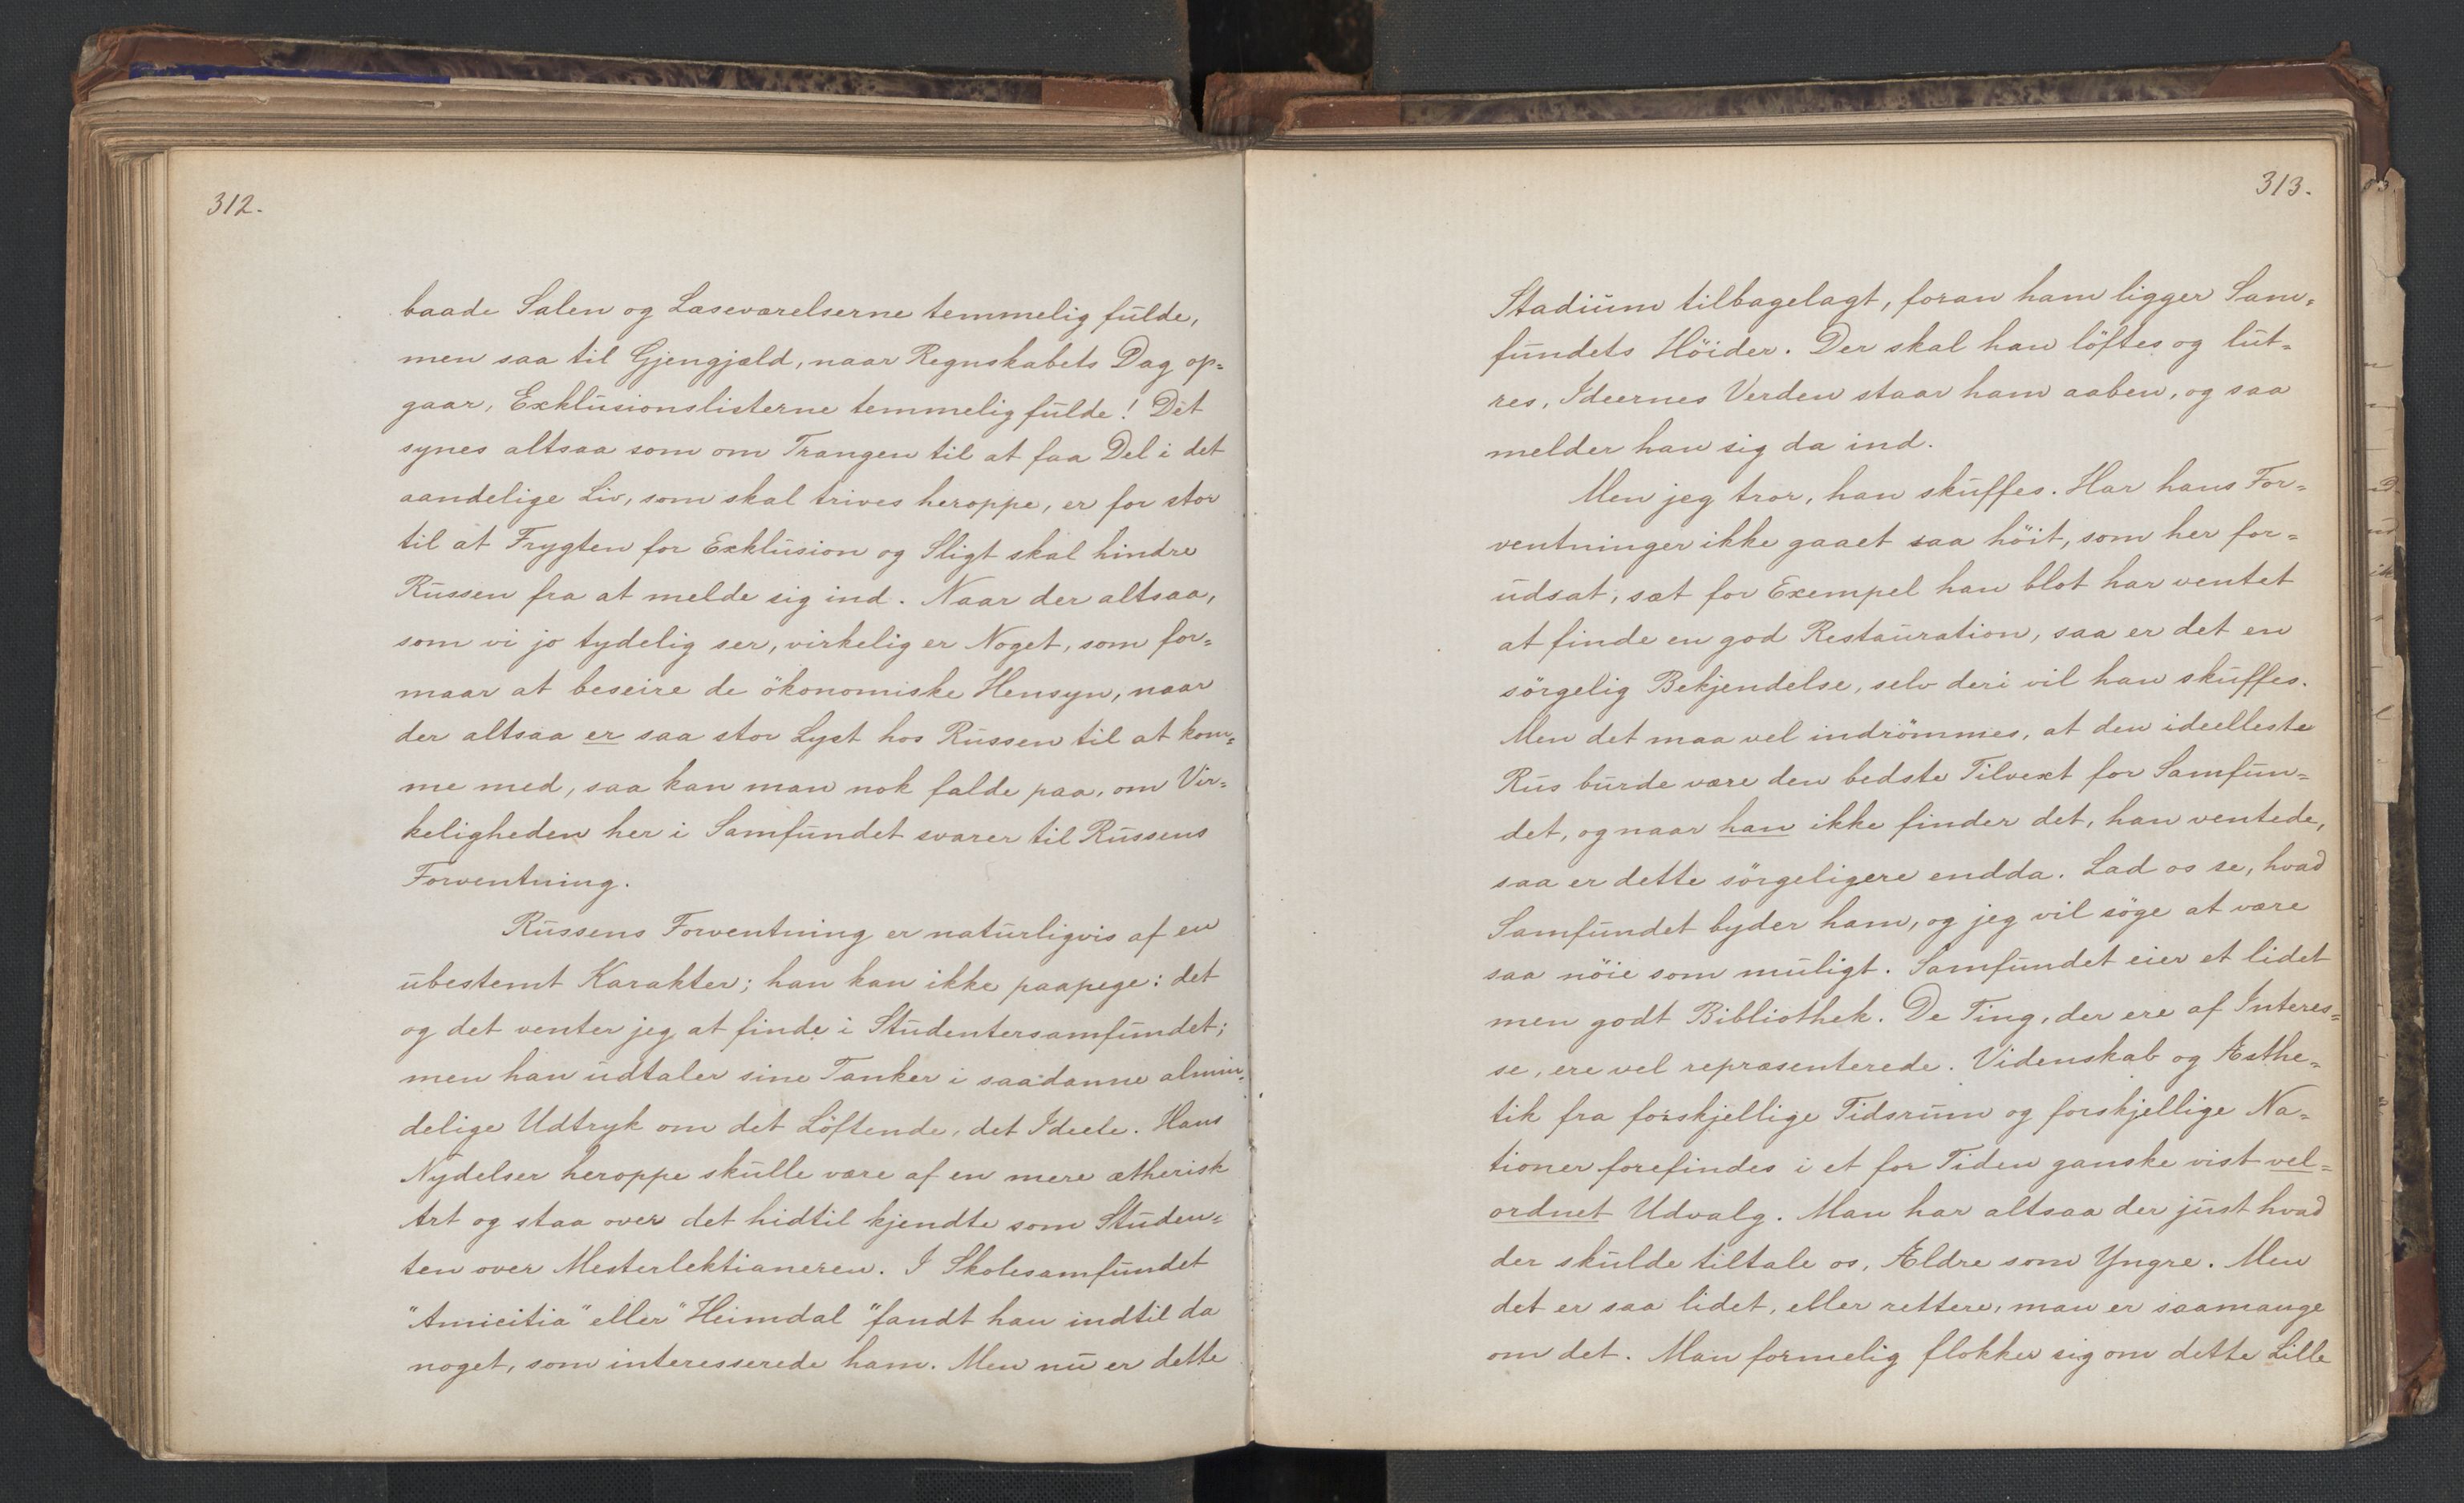 312.
baade Salen og Læseværelserne temmelig fulde,
men saa til Gjengjæld, naar Regnskabets Dag op=
gaar, Exklusionslisterne temmelig fulde! Det
synes altsaa som om Trangen til at faa Del i det
aandelige Liv, som skal trives heroppe, er for stor
til at Frygten for Exklusion og Sligt skal hindre
Russen fra at melde sig ind. Naar der altsaa,
som vi jo tydelig ser, virkelig er Noget, som for=
maar at beseire de ökonomiske Hensyn, naar
der altsaa er saa stor Lyst hos Russen til at kom=
me med, saa kan man nok falde paa, om Vir=
keligheden her i Samfundet svarer til Russens
Forventning.
Russens Forventning er naturligvis af en
ubestemt Karakter; han kan ikke paapege: det
og det venter jeg at finde i Studentersamfundet;
men han udtaler sine Tanker i saadanne almin=
delige Udtryk om det Löftende, det Ideele. Hans
Nydelser heroppe skulle være af en mere ætherisk
Art og staa over det hidtil kjendte som Studen=
ten over Mesterlektianeren. I Skolesamfundet
"Amicitia" eller "Heimdal" fandt han indtil da
noget, som interesserede ham. Men nu er dette
313.
Stadium tilbagelagt, foran ham ligger Sam=
fundets Höider. Der skal han löftes og lut=
res, Ideernes Verden staar ham aaben, og saa
melder han sig da ind.
Men jeg tror, han skuffes. Har hans For=
ventninger ikke gaaet saa höit, som her for=
udsat, sæt for Exempel han blot har ventet
at finde en god Restauration, saa er det en
sörgelig Bekjendelse, selv deri vil han skuffes.
Men det maa vel indrömmes, at den ideelleste
Rus burde være den bedste Tilvext for Samfun=
det, og naar han ikke finder det, han ventede,
saa er dette sörgeligere endda. Lad os se, hvad
Samfundet byder ham, og jeg vil söge at være
saa nöie som muligt. Samfundet eier et lidet
men godt Bibliothek. De Ting, der ere af Interes=
se, ere vel repræsenterede. Videnskab og Æsthe=
tik fra forskjellige Tidsrum og forskjellige Na=
tioner forefindes i et for Tiden ganske vist vel=
ordnet Udvalg. Man har altsaa der just hvad
der skulde tiltale os, Ældre som Yngre. Men
det er saa lidet, eller rettere, man er saamange
om det. Man formelig flokker sig om dette Lille